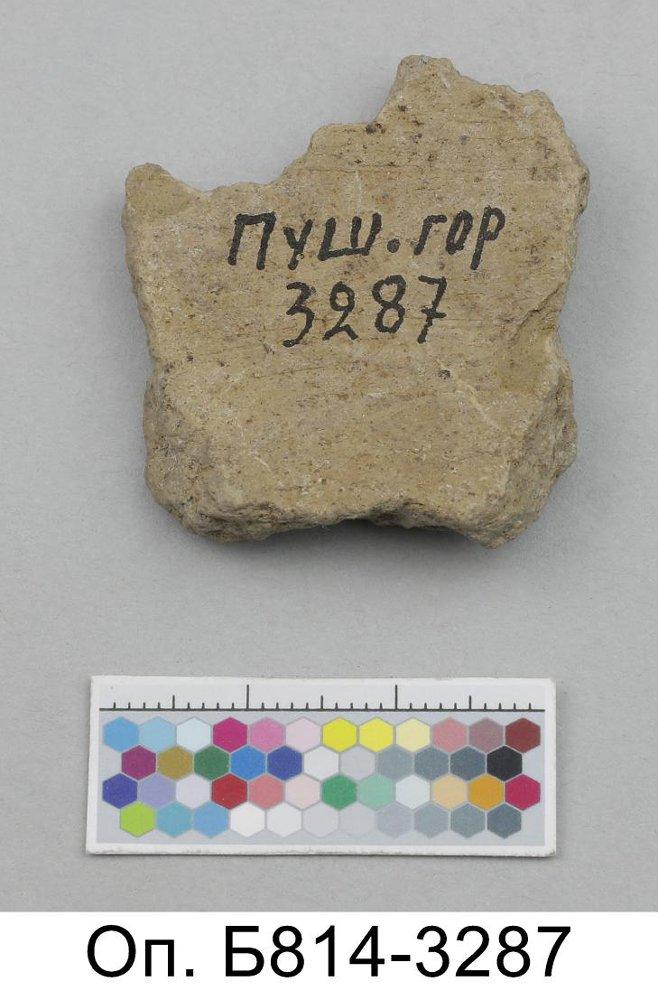 Пуш. гор
3287
Оп. Б814-3287